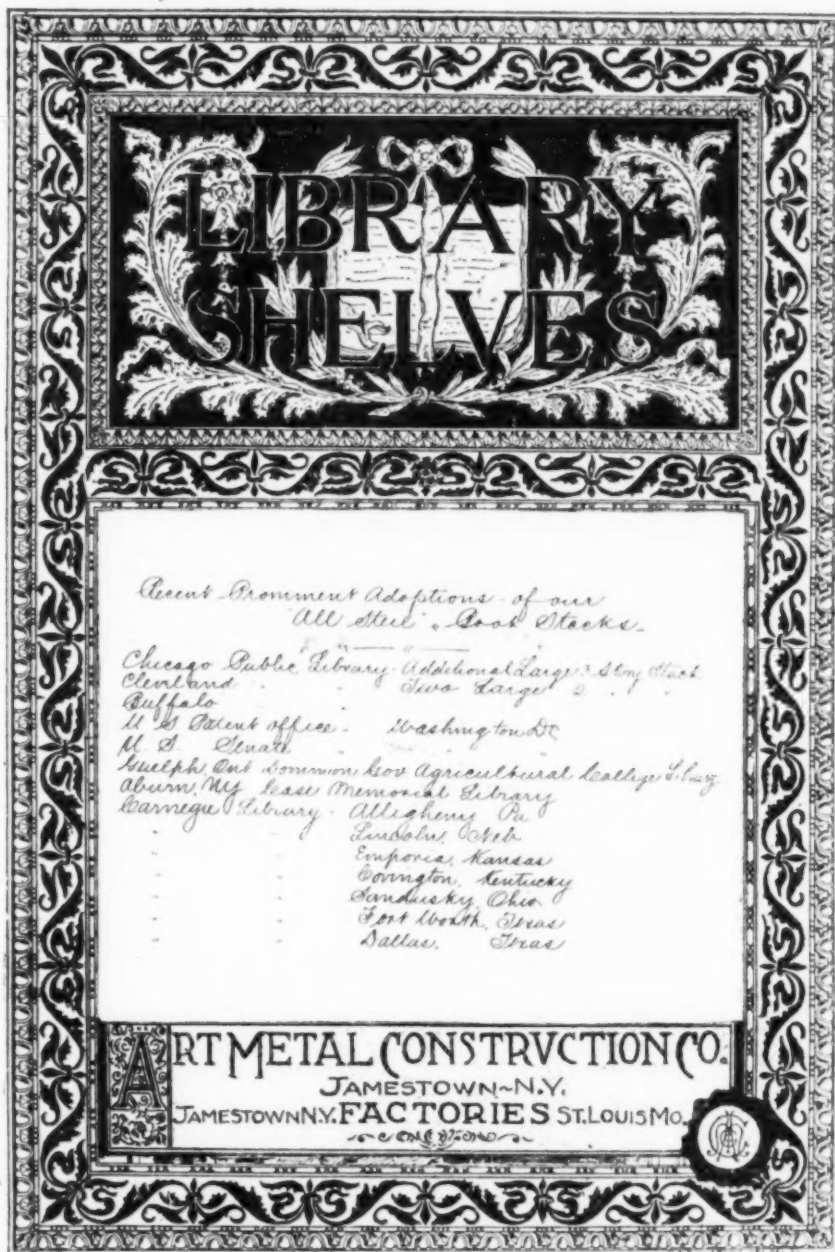 LIBRARY
SHELVES
Recent Prominent Adoptions of our
"All Steel" Book Stacks
" " — " —
Chicago Public Library - Additional Large 3 Story Stack
Cleveland " " Two Large 2 " "
Buffalo "
U S Patent office - Washington DC
U. S. Senate " "
Guelph, Ont Dominion Gov Agricultural College Library
Aburn, NY Case Memorial Library
Carnegie Library - Allegheny Pa
" " Lincoln, Neb
" " Emporia, Kansas
" " Covington, Kentucky
" " Sandusky, Ohio
" " Fort Worth, Texas
" " Dallas, Texas
ART METAL CONSTRVCTION CO.
JAMESTOWN~N.Y.
JAMESTOWN N.Y. FACTORIES ST. LOUIS MO.